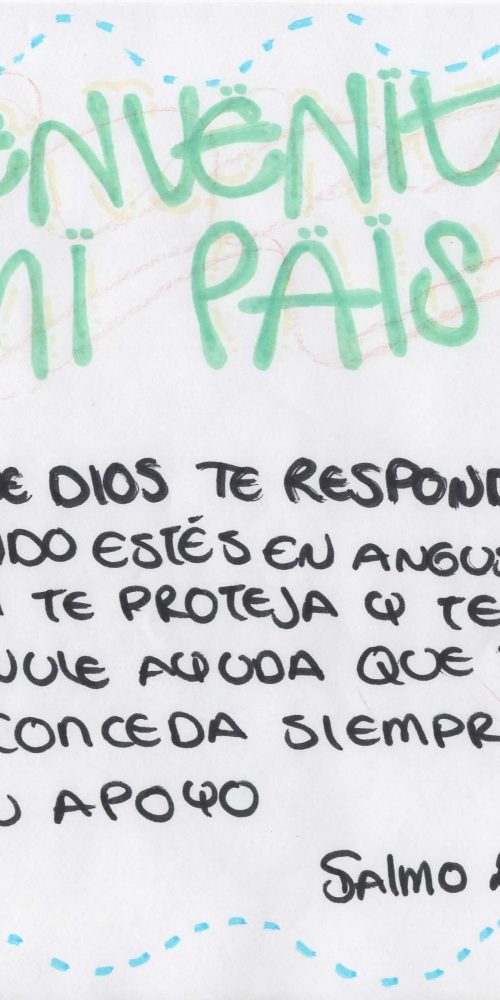 ENVËNÏT
MÏ PÄÏS
DIOS TE RESPOND
NDO ESTÉS EN ANGUS
TE PROTEJA Y TE
AYUDA QUE
CONCEDA SIEMPR
U APOYO
SAlmo